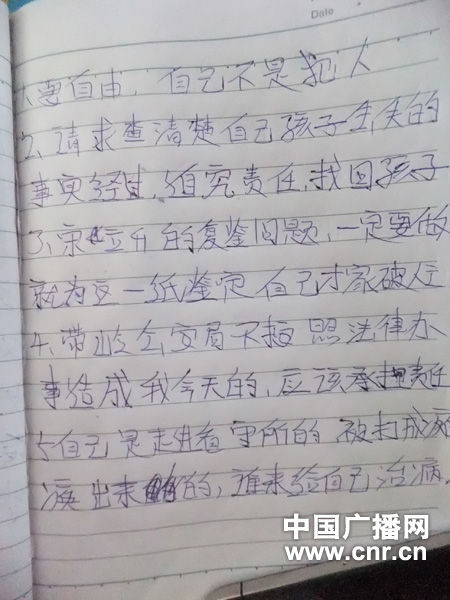 Date
1、要自由,自己不是犯人
2、请求查清楚自己孩子丢失的
事实经过,追究责任,找回孩子
的复鉴问题,一定要做
就为这一纸鉴定自己才家破人亡
4、带岭公安局不按照法律办
事造成我今天的,应该承担责任
5自己是走进看守所的 被打成瘫
痪出来的,谁来给自己治病.
中国广播网
www.cnr.cn